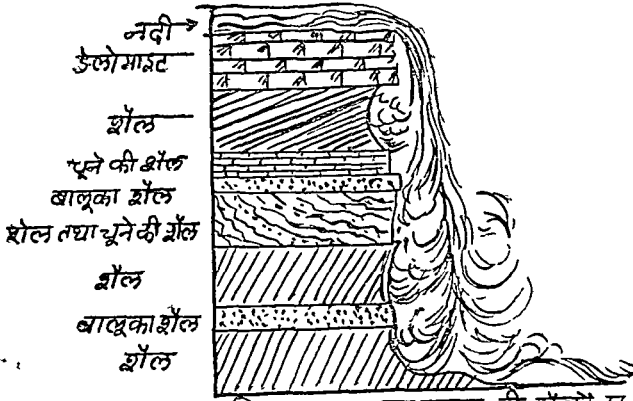 नदी
डोलोमाइट
शैल
चूने की शैल
बालूका शैल
शेल तथा चूने की शैल
शैल
बालूका शैल
शैल